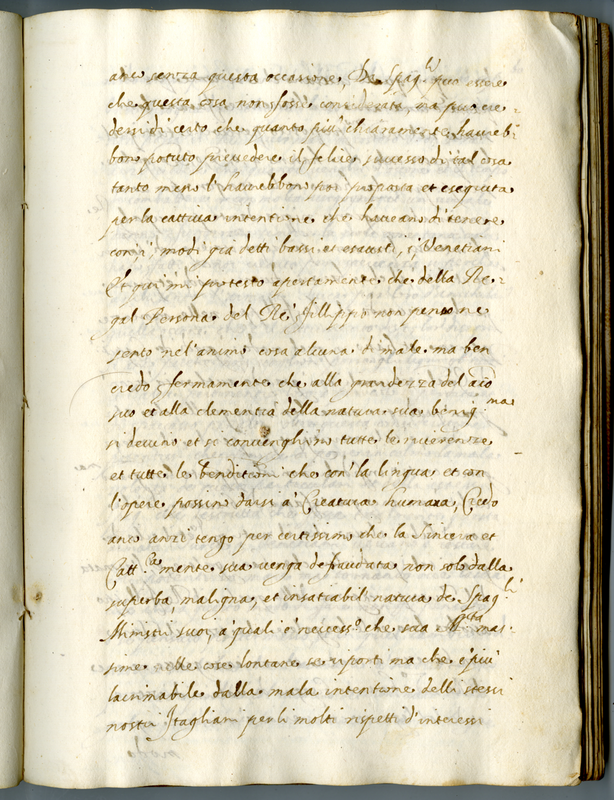 anco senza questa occasione, De Spag.li può essere
che questa cosa non fosse considerata, ma può cre=
dersi di certo che quanto più chiaramente haveb=
bon potuto prevedere il felice successo di tal cosa
tanto meno l'havebbon poi proposta et eseguita
per la cattiva intentione che havean di tenere
con i modi già detti bassi et esausti, i Venetiani
Et qui mi protesto apertamente che della Re=
gal Persona del Re Filippo non penso ne
sento nel'animo cosa alcuna di male ma ben
credo fermamente che alla grandezza del aio
suo et alla clementia della natura sua benig.ma
si devino et si convenghino tutte le riverenze
et tutte le benditioni che con la lingua et con
l'opere possin darsi a Creatura humana, Credo
anco anzi tengo per certissimo che la sincera et
Catt.ca mente sua venga defraudata non solo dalla
superba, maligna, et insatiabil natura de Spag.li
Ministri suoi, a' quali è necess.o che sua M.sta mas=
sime nelle cose lontane se riporti ma che è più
lacrimabile dalla mala intentione delli stessi
nostri Itagliani per li molti rispetti d'interessi